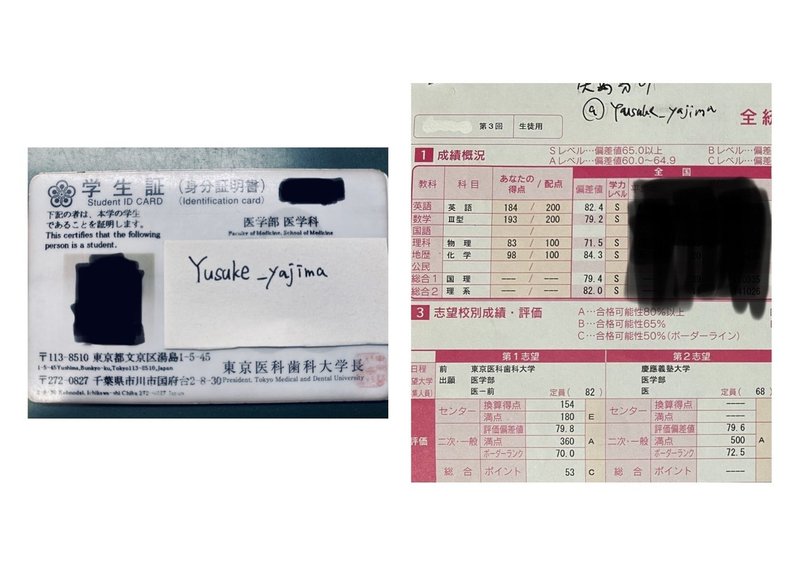 学生証 (身分証明書)
Student ID CARD (Identification card)
下記の者は、本学の学生
であることを証明します。
This certifies that the following
person is a student.
医学部 医学科
Faculty of Medicine, School of Medicine
Yusuke_yajima
〒113-8510 東京都文京区湯島1-5-45
1-5-45 Yushima, Bunkyo-ku, Tokyo 113-8510, Japan
〒272-0827 千葉県市川市国府台2-8-30
東京医科歯科大学長
President, Tokyo Medical and Dental University
@Yusuke_yajima
第3回 生徒用
全統
1 成績概況
Sレベル…偏差値65.0以上
Aレベル…偏差値60.0~64.9
Bレベル…偏差
Cレベル…偏差
教科 科目 あなたの得点 / 配点 偏差値 学力レベル
全国
英語 英語 184 / 200 82.4 S
数学 Ⅲ型 193 / 200 79.2 S
国語
理科 物理 83 / 100 71.5 S
地歴 化学 98 / 100 84.3 S
公民
総合1 国理 --- / --- 79.4 S
総合2 理系 --- / --- 82.0 S
3 志望校別成績・評価
A…合格可能性80%以上
B…合格可能性65%
C…合格可能性50%(ボーダーライン)
第1志望 第2志望
日程 前 東京医科歯科大学 慶應義塾大学
出願 医学部 医学部
医-前 定員( 82) 医 定員( 68
センター 換算得点 154 センター 換算得点 ---
満点 180 E 満点 ---
評価偏差値 79.8 評価偏差値 79.6
二次・一般 満点 360 A 二次・一般 満点 500 A
ボーダーランク 70.0 ボーダーランク 72.5
評価
総合 ポイント 53 C 総合 ポイント ---